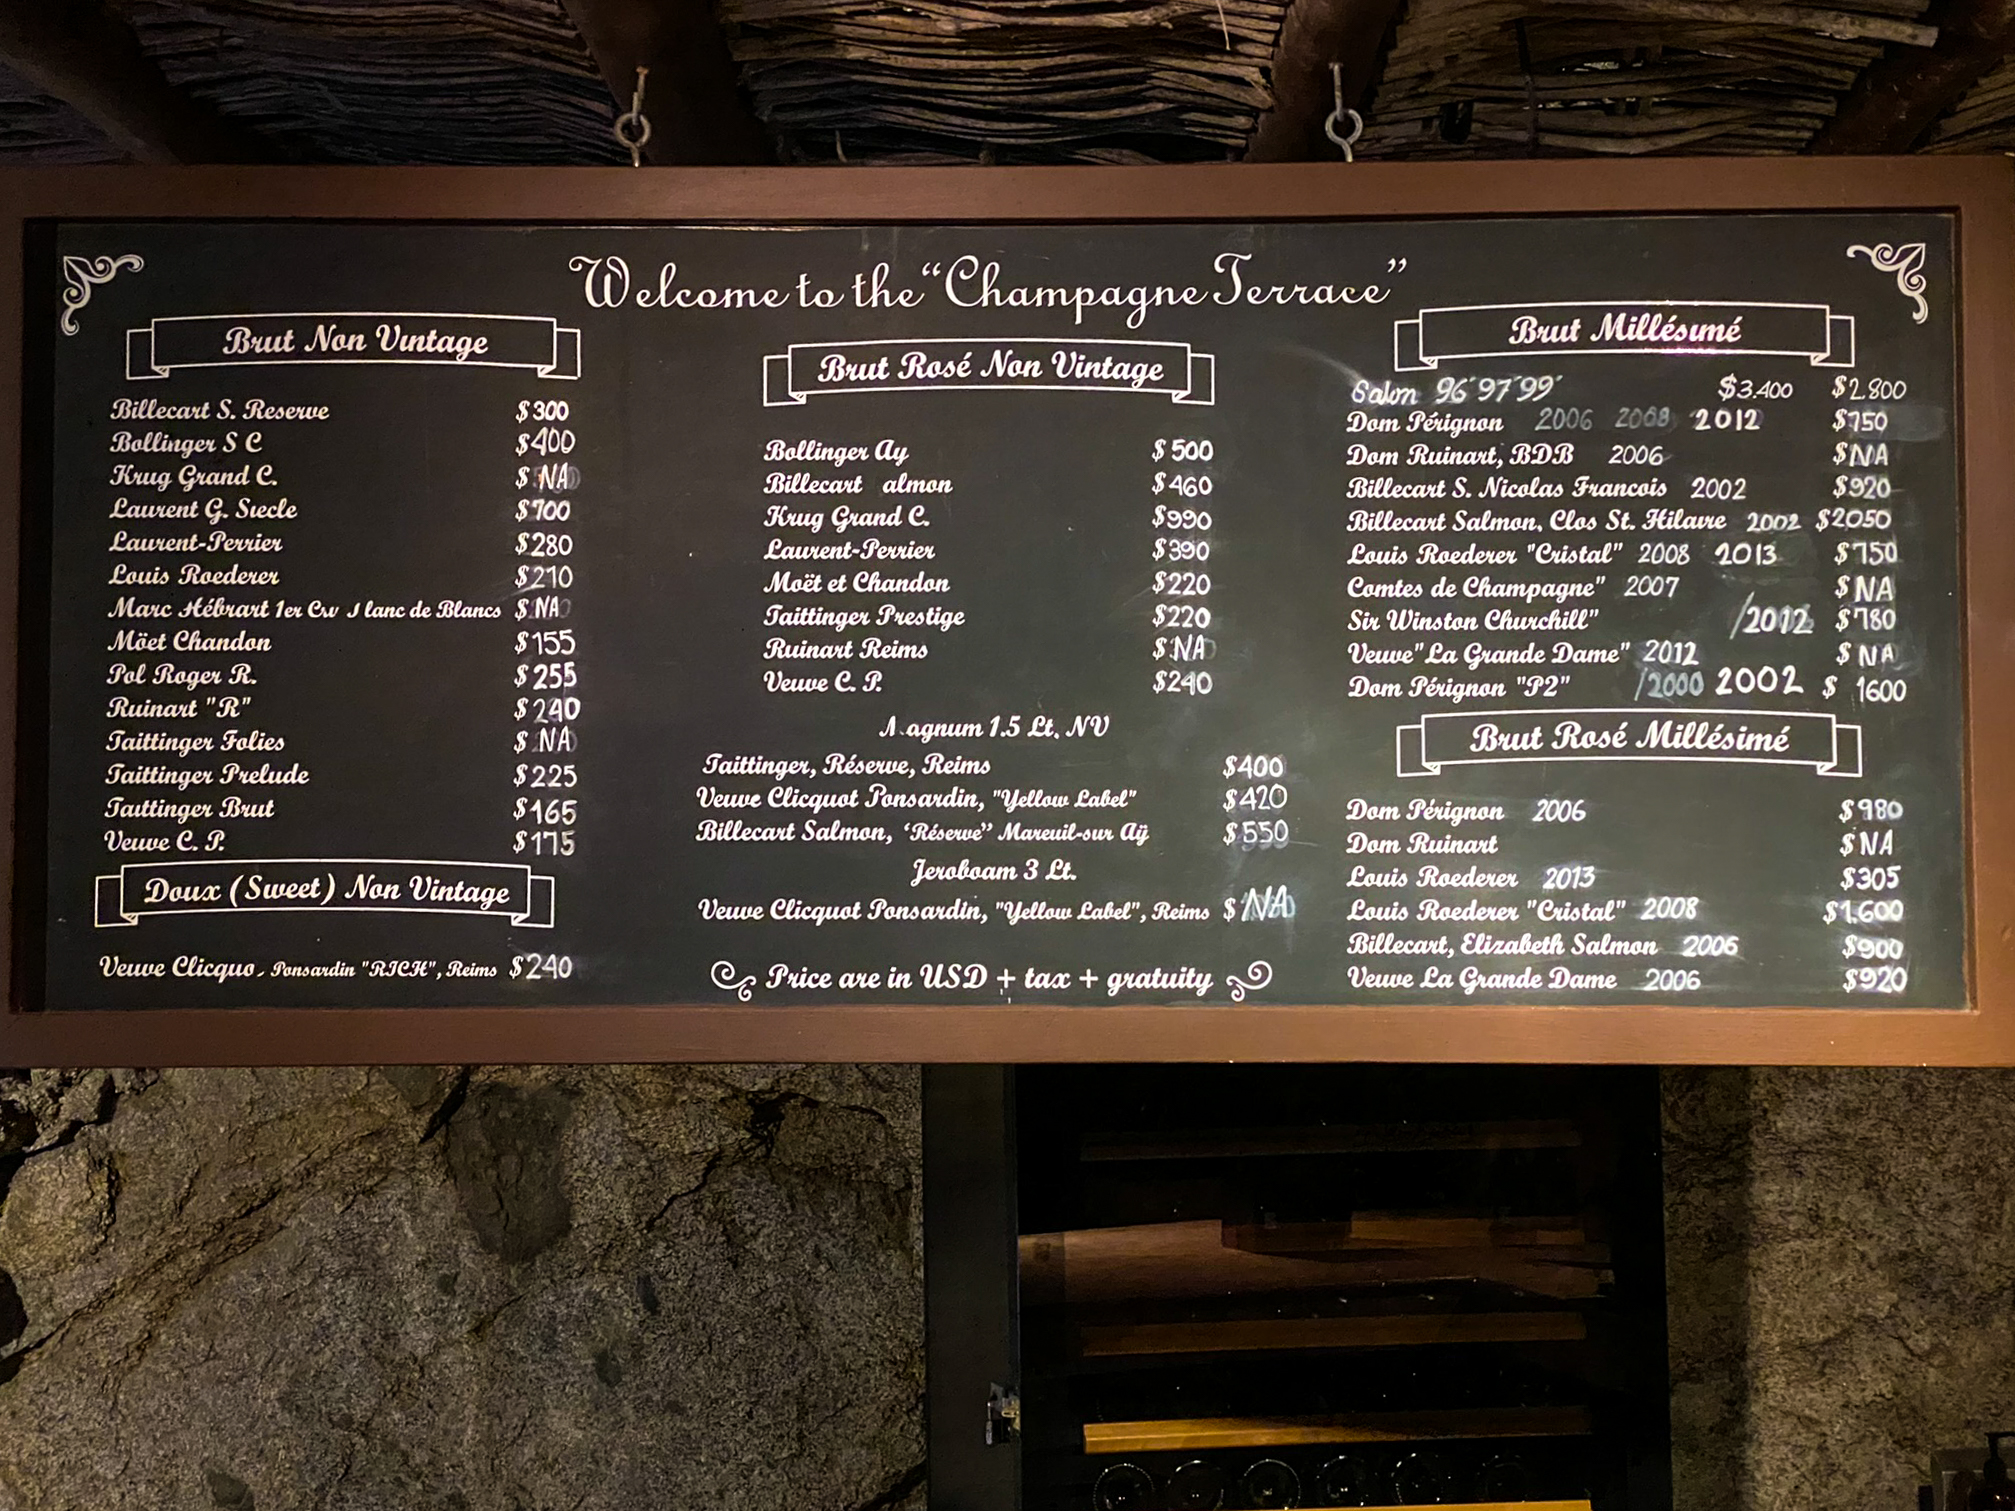 Welcome to the “Champagne Terrace”
Brut Non Vintage
Billecart S. Reserve $300
Bollinger S C $400
Krug Grand C. $ NA
Laurent G. Siecle $700
Laurent-Perrier $280
Louis Roederer $210
Marc Hébrart 1er Cru lanc de Blancs $ NA
Möet Chandon $155
Pol Roger R. $255
Ruinart "R" $240
Taittinger Folies $ NA
Taittinger Prelude $225
Taittinger Brut $165
Veuve C. P. $175
Doux (Sweet) Non Vintage
Veuve Clicquo Ponsardin "RICH", Reims $240
Brut Rosé Non Vintage
Bollinger Ay $500
Billecart almon $460
Krug Grand C. $990
Laurent-Perrier $390
Moët et Chandon $220
Taittinger Prestige $220
Ruinart Reims $ NA
Veuve C. P. $240
Magnum 1.5 Lt. NV
Taittinger, Réserve, Reims $400
Veuve Clicquot Ponsardin, "Yellow Label" $420
Billecart Salmon, ‘Réserve” Mareuil-sur Aÿ $550
Jeroboam 3 Lt.
Veuve Clicquot Ponsardin, "Yellow Label", Reims $ NA
Price are in USD + tax + gratuity
Brut Millésimé
Salon 96' 97' 99' $3.400 $2.800
Dom Pérignon 2006 2008 2012 $750
Dom Ruinart, BDB 2006 $NA
Billecart S. Nicolas Francois 2002 $920
Billecart Salmon, Clos St. Hilaire 2002 $2050
Louis Roederer "Cristal" 2008 2013 $750
Comtes de Champagne" 2007 $ NA
Sir Winston Churchill" /2012 $780
Veuve"La Grande Dame" 2012 $ NA
Dom Pérignon "P2" /2000 2002 $ 1600
Brut Rosé Millésimé
Dom Pérignon 2006 $980
Dom Ruinart $NA
Louis Roederer 2013 $305
Louis Roederer "Cristal" 2008 $1,600
Billecart, Elizabeth Salmon 2006 $900
Veuve La Grande Dame 2006 $920